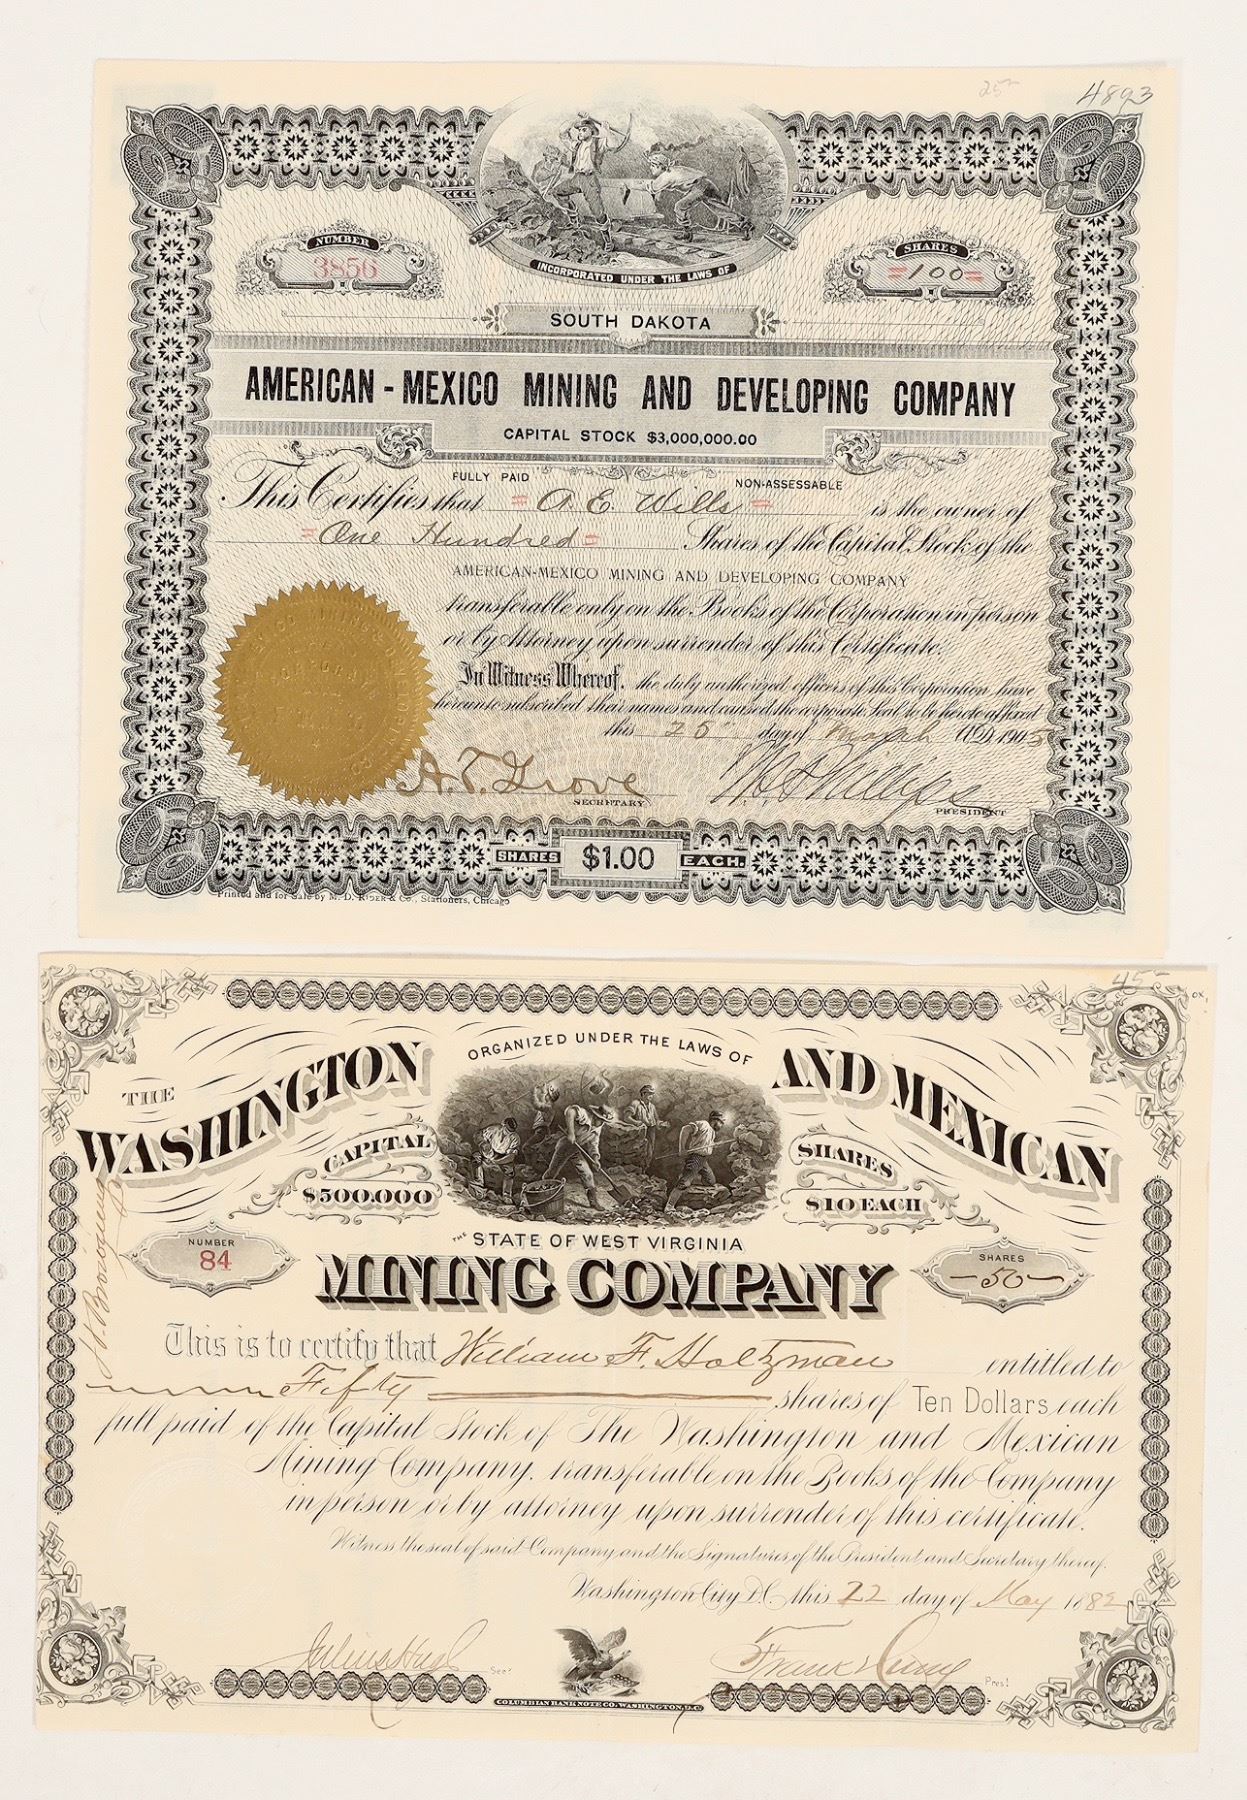 25-
4893
NUMBER
3856
SHARES
=100=
INCORPORATED UNDER THE LAWS OF
SOUTH DAKOTA
AMERICAN-MEXICO MINING AND DEVELOPING COMPANY
CAPITAL STOCK $3,000,000.00
FULLY PAID NON-ASSESSABLE
This Certifies that = A. E. Wills = is the owner of
= One Hundred = Shares of the Capital Stock of the
AMERICAN-MEXICO MINING AND DEVELOPING COMPANY
transferable only on the Books of the Corporation in person
or by Attorney upon surrender of this Certificate.
In Witness Whereof, the duly authorized officers of this Corporation have
hereunto subscribed their names and caused the corporate Seal to be hereto affixed
this 25 day of March A.D. 1905
A. T. Grove
SECRETARY
Phillips
PRESIDENT
SHARES $1.00 EACH.
Printed and for Sale by M. D. RIDER & Co., Stationers, Chicago
45-
ox,
ORGANIZED UNDER THE LAWS OF
THE WASHINGTON AND MEXICAN
CAPITAL
$500.000
SHARES
$10 EACH
THE STATE OF WEST VIRGINIA
NUMBER
84
SHARES
-50-
MINING COMPANY
This is to certify that William F. Holtzman entitled to
Fifty shares of Ten Dollars each
full paid of the Capital Stock of The Washington and Mexican
Mining Company, transferable on the Books of the Company
in person or by attorney upon surrender of this certificate.
Witness the seal of said Company and the Signatures of the President and Secretary thereof.
Washington City D.C. this 22 day of May 1882
Secy
Frank
Prest
COLUMBIAN BANK NOTE CO. WASHINGTON, D.C.